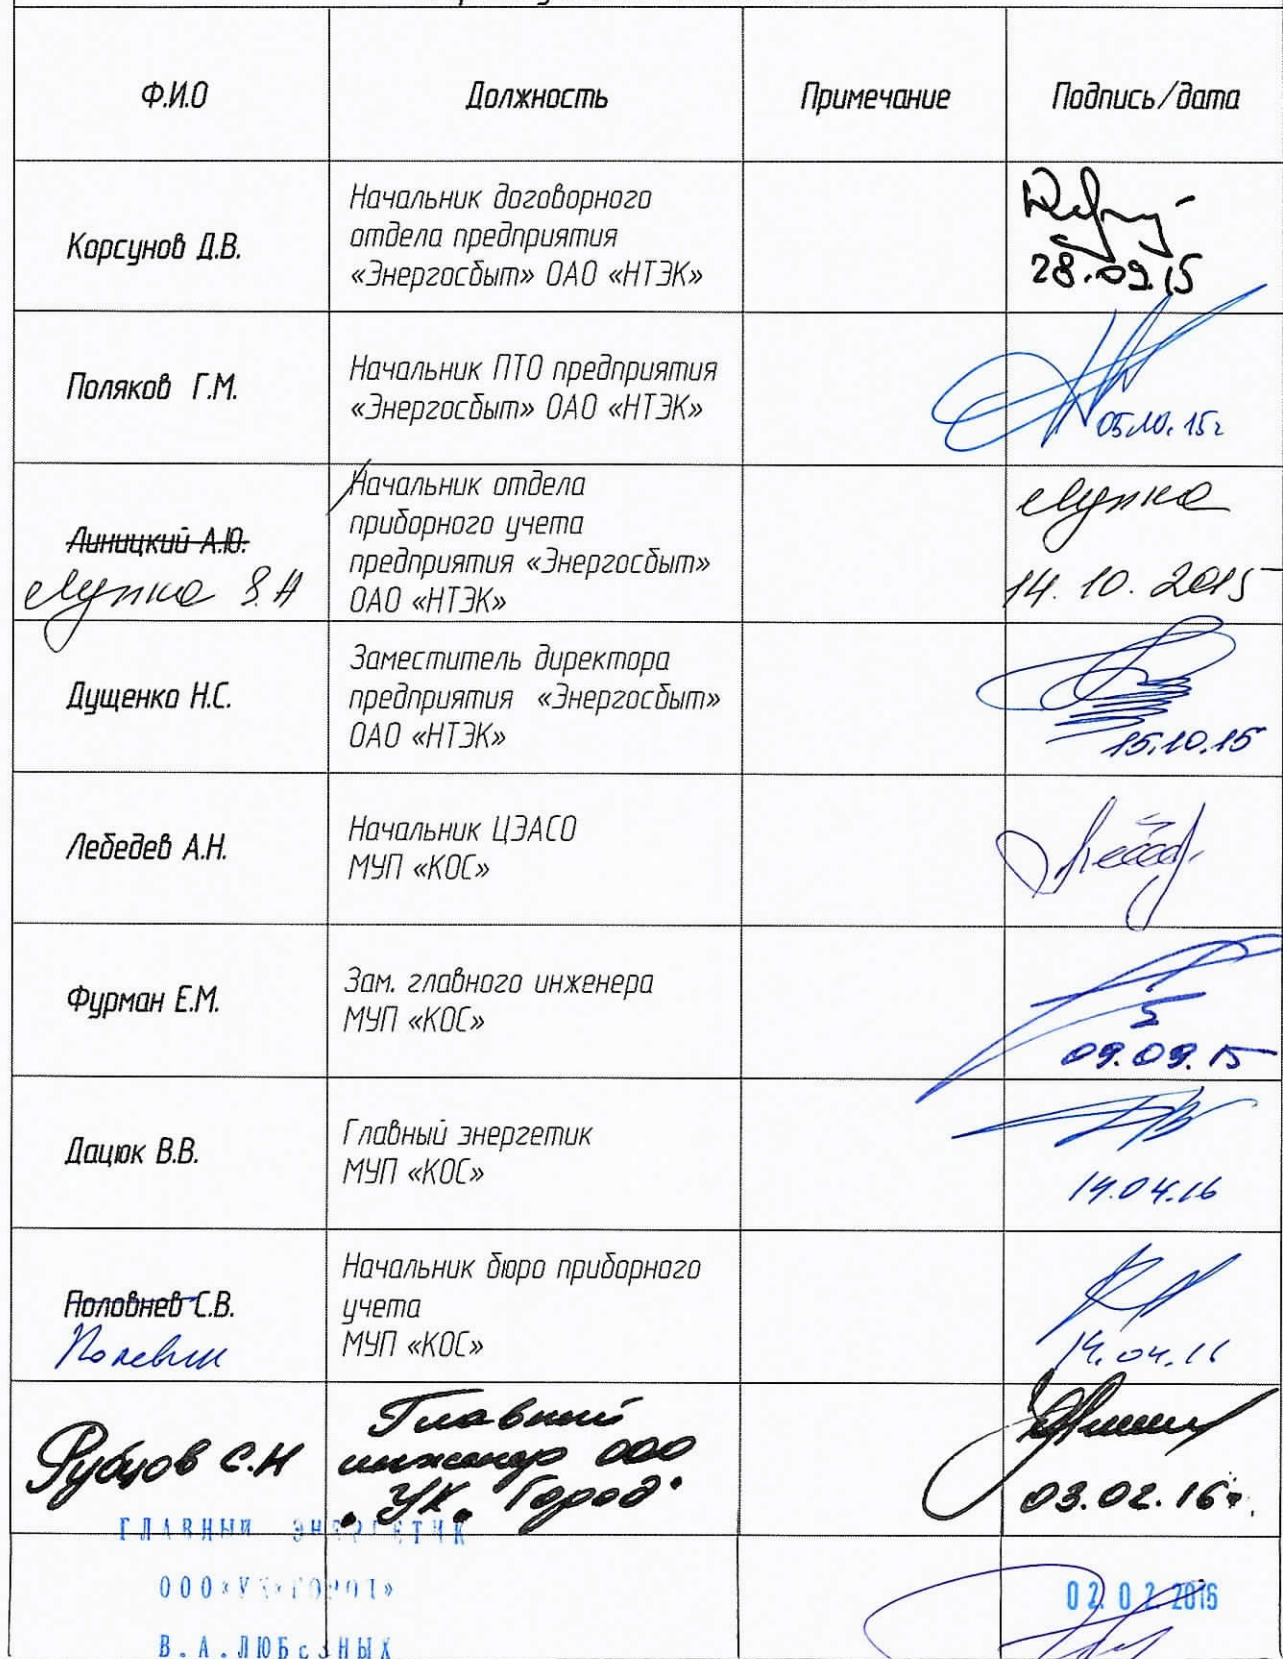 Ф.И.О Должность Примечание Подпись/дата
Корсунов Д.В.
Начальник договорного
отдела предприятия
«Энергосбыт» ОАО «НТЭК»
28.09.15
Поляков Г.М.
Начальник ПТО предприятия
«Энергосбыт» ОАО «НТЭК»
05.10.15г
Линицкий А.Ю.
Лупка З.А
Начальник отдела
приборного учета
предприятия «Энергосбыт»
ОАО «НТЭК»
Лупка
14.10.2015
Дущенко Н.С.
Заместитель директора
предприятия «Энергосбыт»
ОАО «НТЭК»
15.10.15
Лебедев А.Н.
Начальник ЦЭАСО
МУП «КОС»
Фурман Е.М.
Зам. главного инженера
МУП «КОС»
09.09.15
Дацюк В.В.
Главный энергетик
МУП «КОС»
14.04.16
Половнев С.В.
Начальник бюро приборного
учета
МУП «КОС»
14.04.16
Рубцов С.Н
Главный
инженер ООО
"УК "Город"
03.02.16г.
ГЛАВНЫЙ ЭНЕРГЕТИК
ООО«УК«ГОРОД»
В.А.ЛЮБЕЗНЫХ
02.02.2016